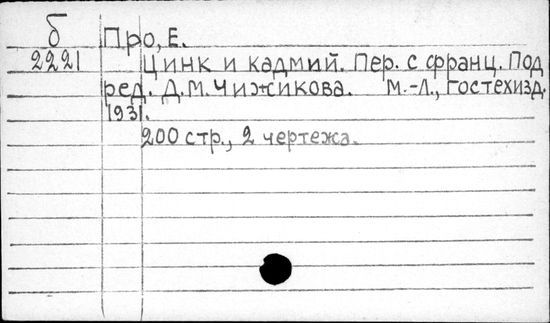 б
2221
Про, Е.
Цинк и кадмий. Пер. с франц. Под
ред. Д.М. Чижикова. М.-Л., Гостехизд.
1931.
200 стр., 2 чертежа.